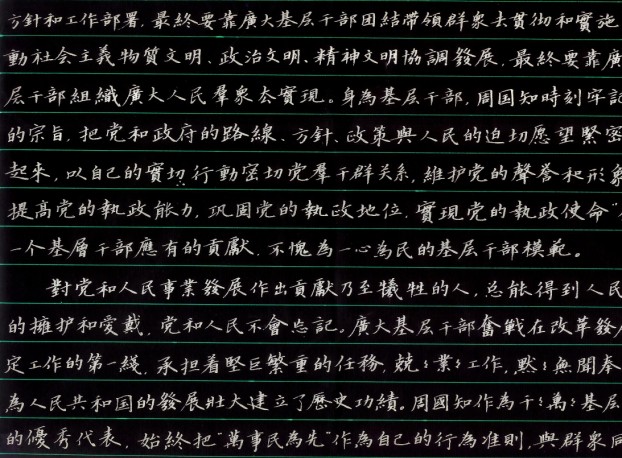 方針和工作部署,最終要靠廣大基层干部团結帶領群衆去貫彻和實施
動社会主義物質文明、政治文明、精神文明協調發展,最終要靠廣
层干部組織廣大人民羣衆去實現。身為基层干部,周国知時刻牢記
的宗旨,把党和政府的路線、方針、政策與人民的迫切愿望緊密
起來,以自己的實切行動密切党羣干群关系,維护党的聲誉和形象
提高党的執政能力,巩固党的執政地位,實現党的執政使命"
一个基層干部應有的貢獻,不愧為一心為民的基层干部模範。
對党和人民事業發展作出貢獻乃至犧牲的人,总能得到人民
的擁护和愛戴,党和人民不會忘記。廣大基层干部奮戰在改革發
定工作的第一綫,承担着堅巨繁重的任務,兢〻業〻工作,默〻無聞奉
為人民共和国的發展壯大建立了歷史功績。周國知作為千〻萬〻基层
的優秀代表,始終把"萬事民為先"作為自己的行為准則,與群衆同